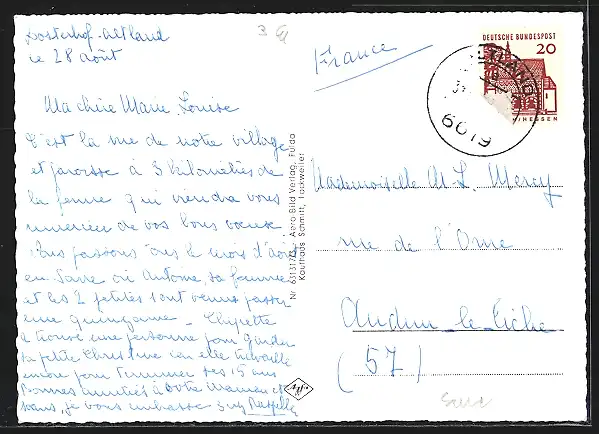 le 28 août
Ma chère Marie Louise
C'est la vue de notre village
et paroisse à 3 kilomètres de
la ferme qui viendra vous
de vos bons vœux
Nous passons le mois d'août
en Sarre où Antoine, sa femme
et les 2 petites sont venus passer
une quinzaine -
a trouvé une personne pour garder
sa petite Christine car elle travaille
encore pour terminer ses 15 ans
Bonnes amitiés à votre Maman et
je vous embrasse
Nr. Aero Bild Verlag, Fulda
Kaufhaus Schmitt, Lockweiler
Agfa
France
DEUTSCHE BUNDESPOST
20
HESSEN
6619
Mademoiselle M. L. Mercy
rue de l'Orne
Audun le Tiche
(57)